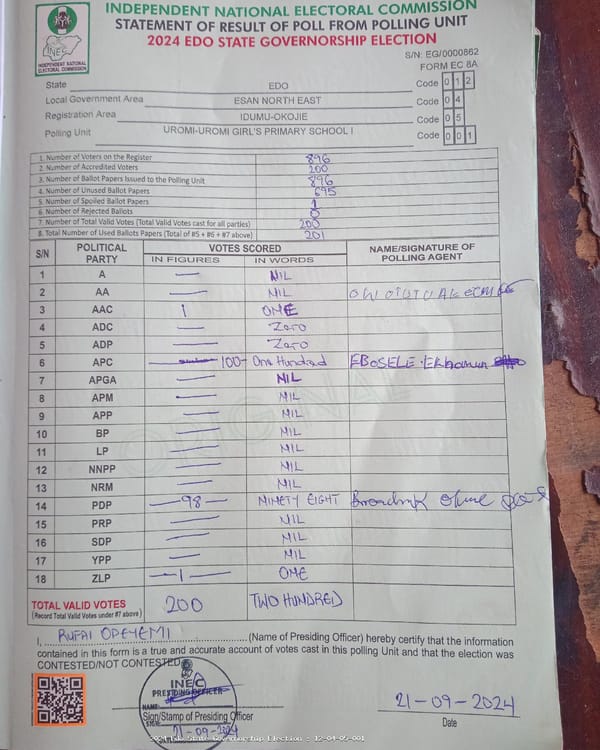 INDEPENDENT NATIONAL ELECTORAL COMMISSION
STATEMENT OF RESULT OF POLL FROM POLLING UNIT
2024 EDO STATE GOVERNORSHIP ELECTION
INEC
INDEPENDENT NATIONAL
ELECTORAL COMMISSION
S/N: EG/0000862
FORM EC 8A
State EDO Code 0 1 2
Local Government Area ESAN NORTH EAST Code 0 4
Registration Area IDUMU-OKOJIE Code 0 5
Polling Unit UROMI-UROMI GIRL'S PRIMARY SCHOOL I Code 0 0 1
1. Number of Voters on the Register 896
2. Number of Accredited Voters 200
3. Number of Ballot Papers Issued to the Polling Unit 896
4. Number of Unused Ballot Papers 695
5. Number of Spoiled Ballot Papers 1
6. Number of Rejected Ballots 0
7. Number of Total Valid Votes (Total Valid Votes cast for all parties) 200
8. Total Number of Used Ballots Papers (Total of #5 + #6 + #7 above) 201
S/N POLITICAL PARTY VOTES SCORED NAME/SIGNATURE OF POLLING AGENT
IN FIGURES IN WORDS
1 A — NIL
2 AA — NIL
3 AAC 1 ONE
4 ADC — Zero
5 ADP — Zero
6 APC 100 - One Hundred EBOSELE
7 APGA — NIL
8 APM — NIL
9 APP — NIL
10 BP — NIL
11 LP — NIL
12 NNPP — NIL
13 NRM — NIL
14 PDP — 98 — NINETY EIGHT
15 PRP — NIL
16 SDP — NIL
17 YPP — NIL
18 ZLP — 1 — ONE
TOTAL VALID VOTES 200 TWO HUNDRED
(Record Total Valid Votes under #7 above)
I, RUFAI OPEYEMI (Name of Presiding Officer) hereby certify that the information
contained in this form is a true and accurate account of votes cast in this polling Unit and that the election was
CONTESTED/NOT CONTESTED
INEC
PRESIDING OFFICER
NAME:
Sign/Stamp of Presiding Officer
21-09-2024
21-09-2024
Date
2024 Edo State Governorship Election - 12-04-05-001
ORIGINAL